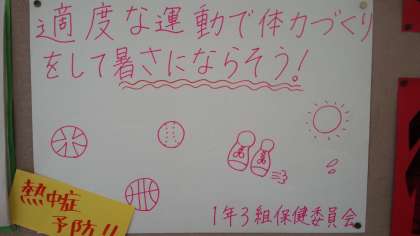 適度な運動で体力づくり
をして暑さにならそう!
熱中症
予防!!
1年3組保健委員会